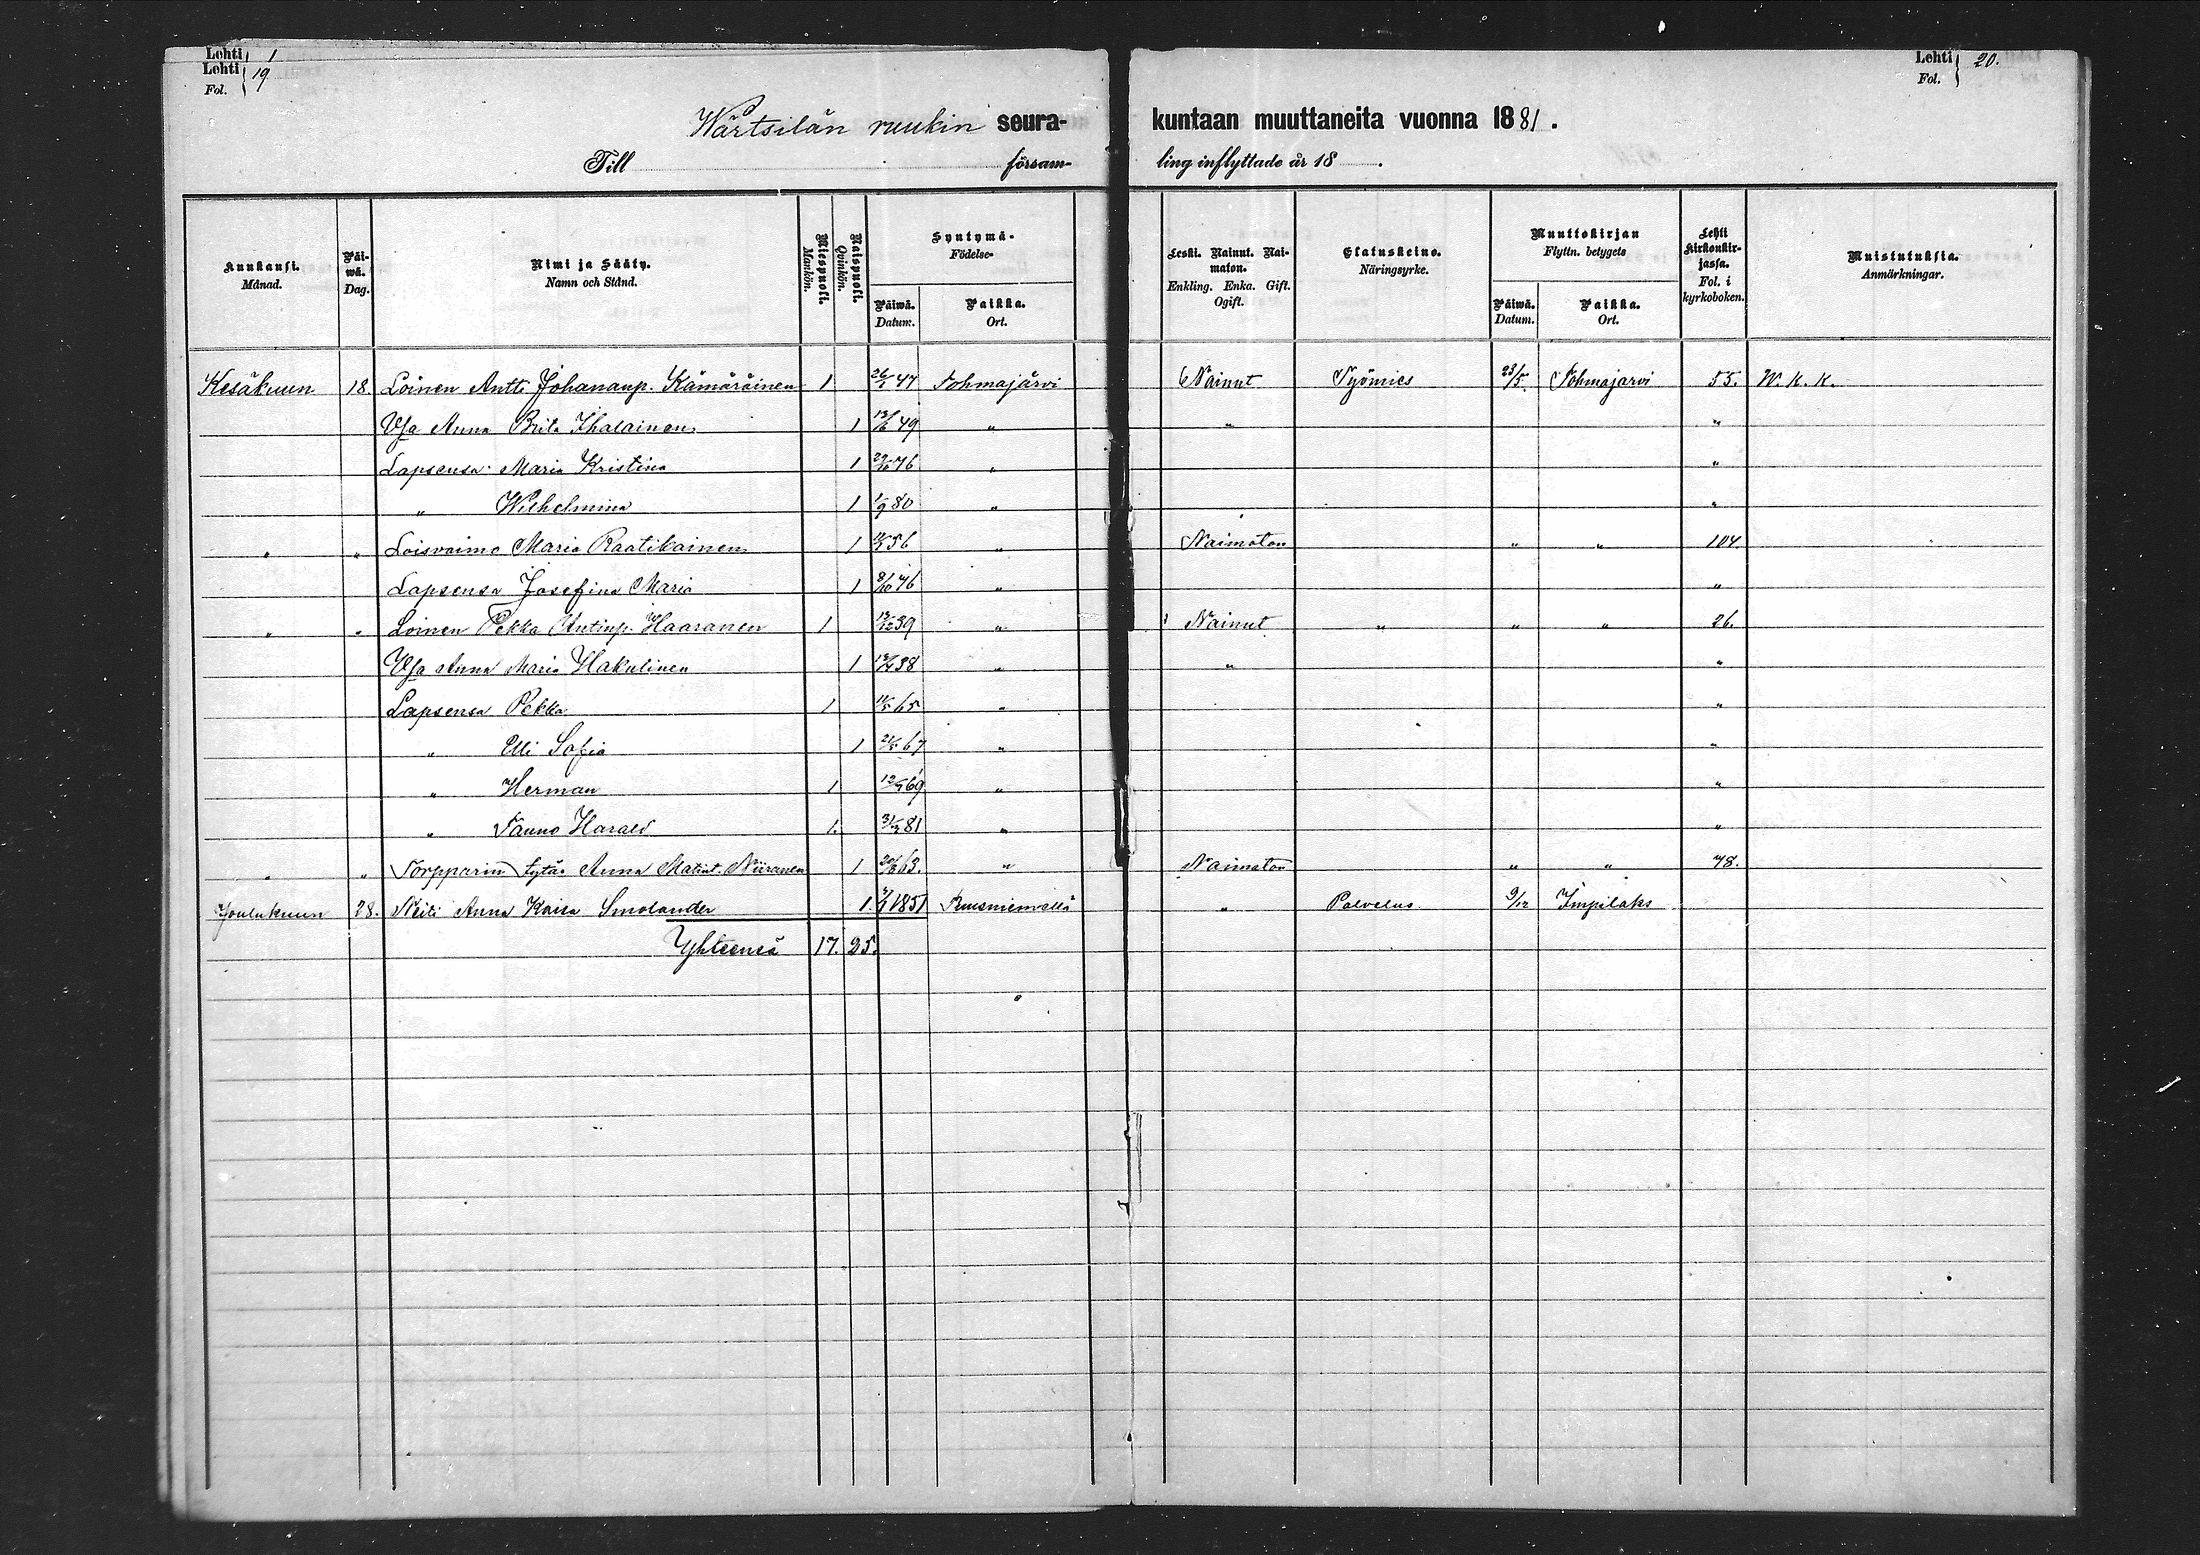 Lehti 1
Lehti 19
Fol.
Lehti 20.
Fol.
Wärtsilän ruukin seura- kuntaan muuttaneita vuonna 1881.
Till försam- ling inflyttade år 18 .
Kuukausi. Månad.
Päiwä. Dag.
Nimi ja Sääty. Namn och Stånd.
Miespuoli. Mankön.
Naispuoli. Qvinkön.
Syntymä- Födelse-
Päiwä. Datum.
Paikka. Ort.
Leski. Nainut. Naimaton. Enkling. Enka. Gift. Ogift.
Elatuskeino. Näringsyrke.
Muuttokirjan Flyttn. betygets
Päiwä. Datum.
Paikka. Ort.
Lehti kirkonkirjassa. Fol. i kyrkoboken.
Muistutuksia. Anmärkningar.
Kesäkuun 18. Loinen Antti Johananp. Kämäräinen 1 47 Tohmajärvi Nainut Työmies 23/5 Tohmajärvi 55. W. K. K.
Vsa Anna Brita Ihalainen 1 49 " " "
Lapsensa Maria Kristina 1 76 " "
" Wilhelmina 1 1/9 80 " "
" " Loisvaimo Maria Raatikainen 1 56 " Naimaton " " 104.
Lapsensa Josefina Maria 1 8/10 76 " "
" " Loinen Pekka Antinp. Haaranen 1 39 " Nainut " " " 26.
Vsa Anna Maria Hakulinen 1 38 " " "
Lapsensa Pekka 1 65 " "
" Elli Sofia 1 67 " "
" Herman 1 69 " "
" Tauno Harald 1. 81 " "
" " Torpparin tytär Anna Matint. Niiranen 1 63. " Naimaton " " 78.
Joulukuun 28. Neiti Anna Kaisa Smolander 1. 1851 " Palvelus 9/12 Impilaks
Yhteensä 17. 25.